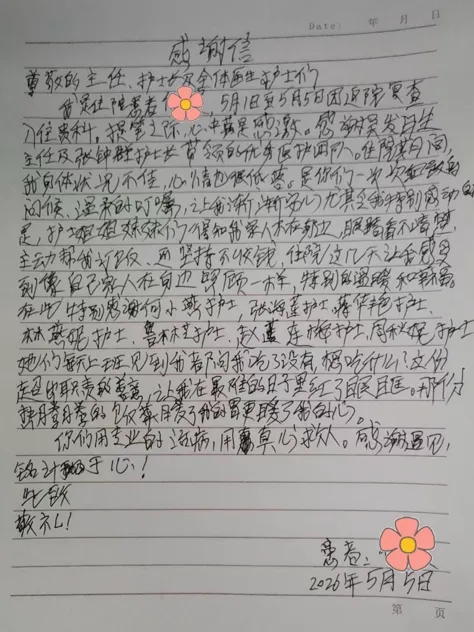 Date: 年 月 日
感谢信
尊敬的主任、护士长及全体医生护士们
我是住院患者 5月1日至5月5日因返院复查
入住贵科,提笔之际,心中满是感激。感谢吴发日生
主任及张钟群护士长带领的优秀医护团队。住院期间,
我身体状况不佳,心情也很低落。是你们一次次耐心的
问候、温柔的叮嘱,让我渐渐安心尤其令我特别感动的
是,护士姐姐妹妹们了得知我家人不在身边,眼睛看不清楚,
主动帮我订饭、而坚持不收钱,住院这几天让我感受
到像自己家人在身边照顾一样,特别的温暖和幸福。
在此特别感谢何小燕护士,张海莲护士,蒋伟艳护士,
林燕妮护士,鲁林林护士,赵莲 护士,周秋妮护士
她们每天上班见到我都问我吃了没有,想吃什么?这份
超出职责的善意,让我在最难的日子里红了眼眶。那份
热腾腾的饭菜暖了我的胃更暖了我的心。
你们用专业的治病,用真心救人。感谢遇见,
铭记于心!
此致
敬礼!
患者:
2026年5月5日
第 页